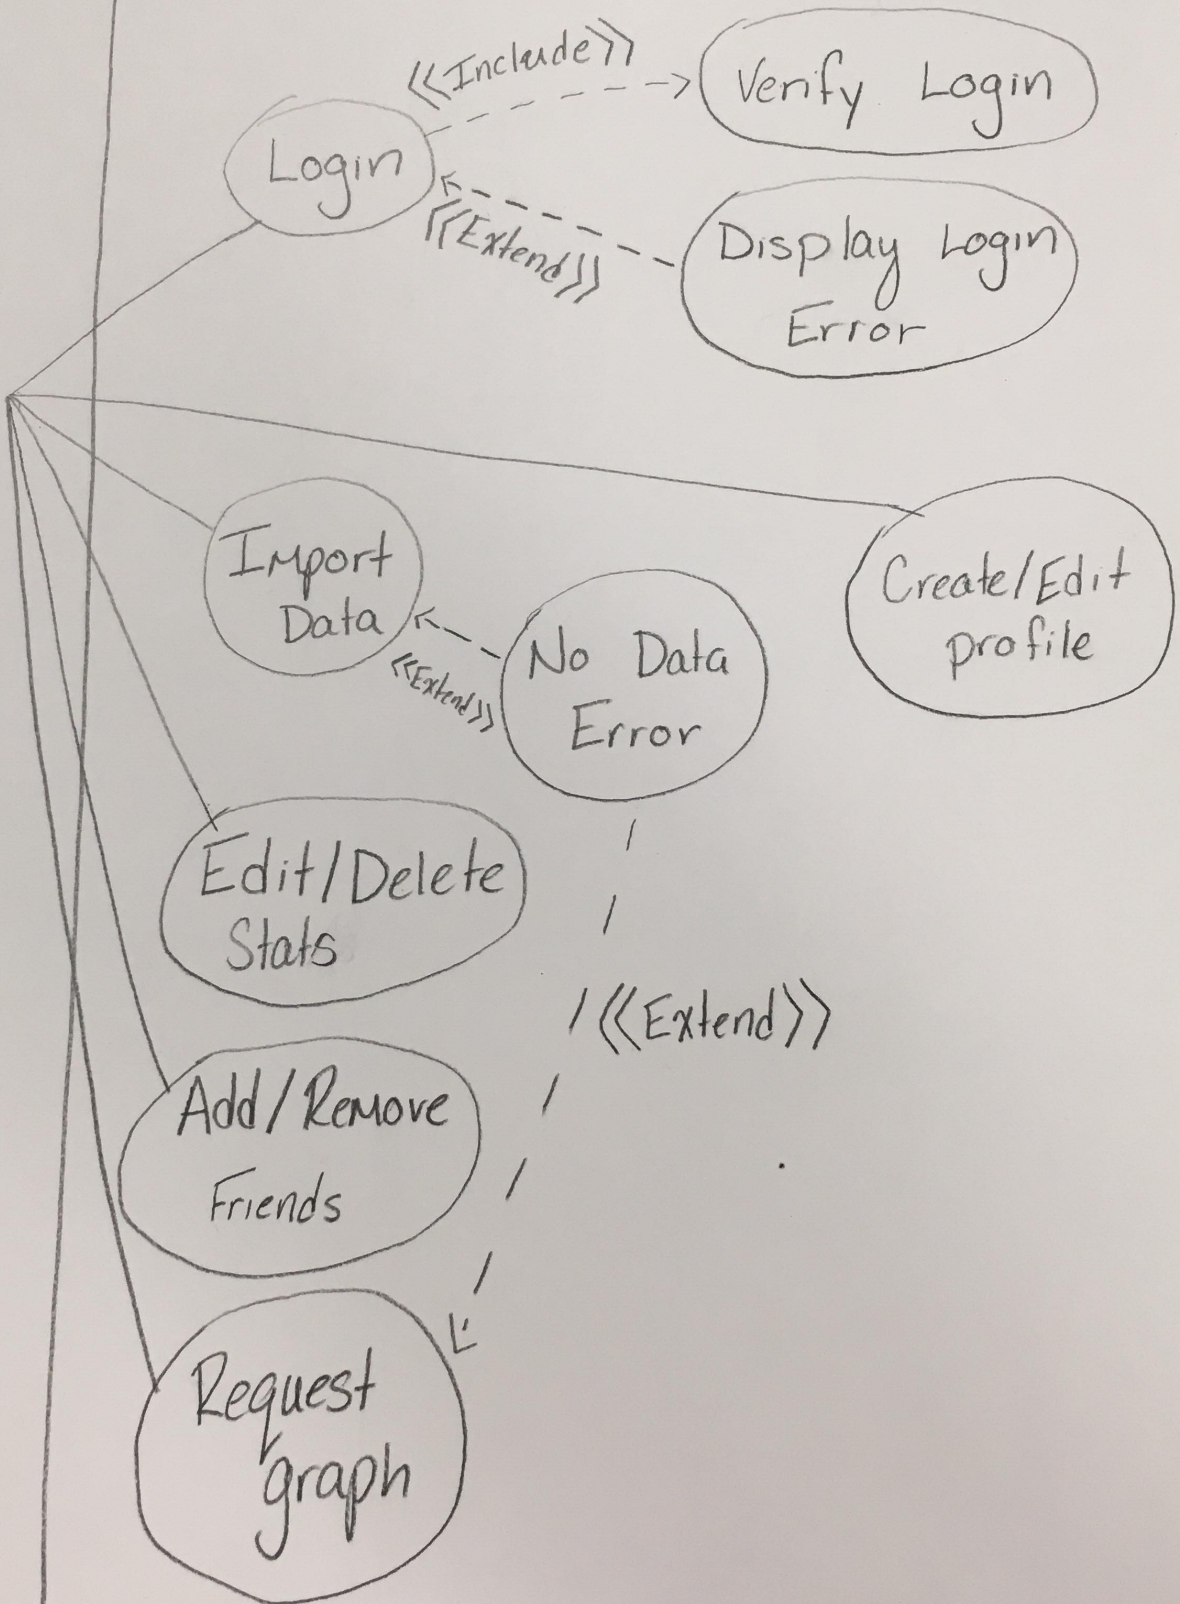 <<Include>>
Verify Login
Login
<<Extend>>
Display Login
Error
Import
Data
<<Extend>>
No Data
Error
Create/Edit
profile
Edit/Delete
Stats
<<Extend>>
Add/Remove
Friends
Request
graph